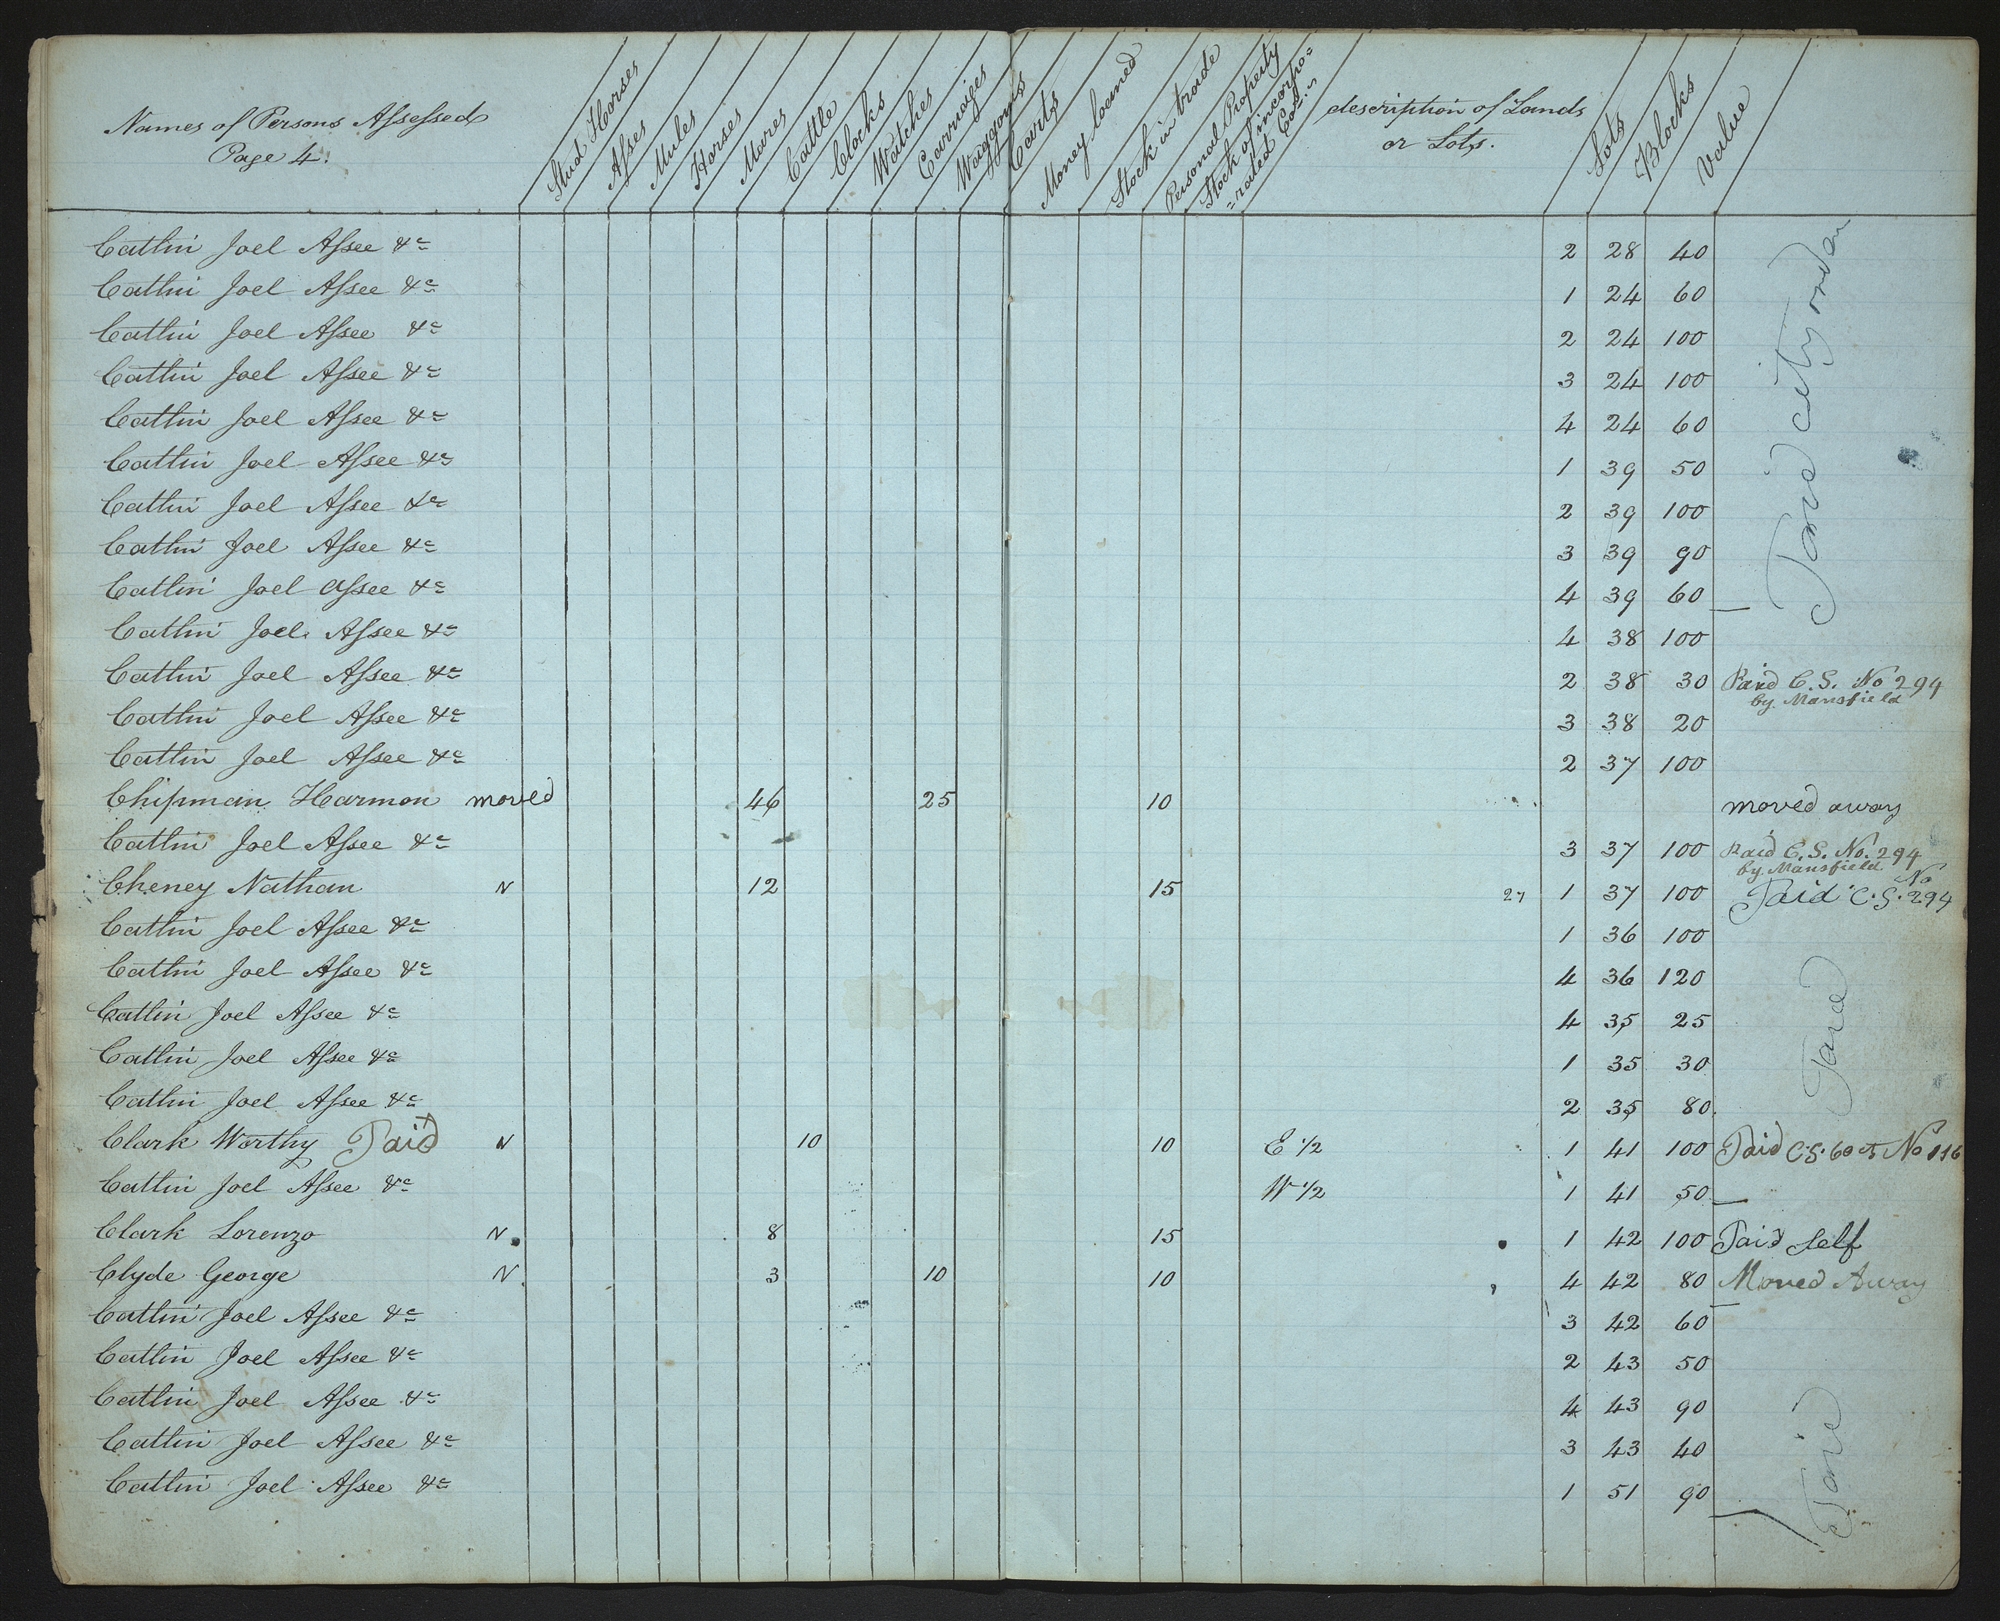 Names of Persons Assessed
Page 4.
Stud Horses
Asses
Mules
Horses
Mares
Cattle
Clocks
Watches
Carriages
Waggons
Carts
Money loaned
Stock in trade
Personal Property
Stock of incorpo=
=rated Co.s
description of Lands
or Lots.
Lots
Blocks
Value
Catlin Joel Assee &c 2 28 40
Catlin Joel Assee &c 1 24 60
Catlin Joel Assee &c 2 24 100
Catlin Joel Assee &c 3 24 100
Catlin Joel Assee &c 4 24 60
Catlin Joel Assee &c 1 39 50
Catlin Joel Assee &c 2 39 100
Catlin Joel Assee &c 3 39 90
Catlin Joel Assee &c 4 39 60
Paid city order
Catlin Joel Assee &c 4 38 100
Catlin Joel Assee &c 2 38 30 Paid C.S. No 294
by Mansfield
Catlin Joel Assee &c 3 38 20
Catlin Joel Assee &c 2 37 100
Chipman Harmon moved 46 25 10 moved away
Catlin Joel Assee &c 3 37 100 Paid C.S. No. 294
by Mansfield
Cheney Nathan N 12 15 27 1 37 100 Paid C.S. No 294
Catlin Joel Assee &c 1 36 100
Catlin Joel Assee &c 4 36 120
Catlin Joel Assee &c 4 35 25
Catlin Joel Assee &c 1 35 30
Catlin Joel Assee &c 2 35 80.
Paid
Clark Worthy Paid N 10 10 E 1/2 1 41 100 Paid C.S. 60 No 116
Catlin Joel Assee &c W 1/2 1 41 50
Clark Lorenzo N 8 15 1 42 100 Paid Self
Clyde George N 3 10 10 4 42 80 Moved Away
Catlin Joel Assee &c 3 42 60
Catlin Joel Assee &c 2 43 50
Catlin Joel Assee &c 4 43 90
Catlin Joel Assee &c 3 43 40
Catlin Joel Assee &c 1 51 90
Paid